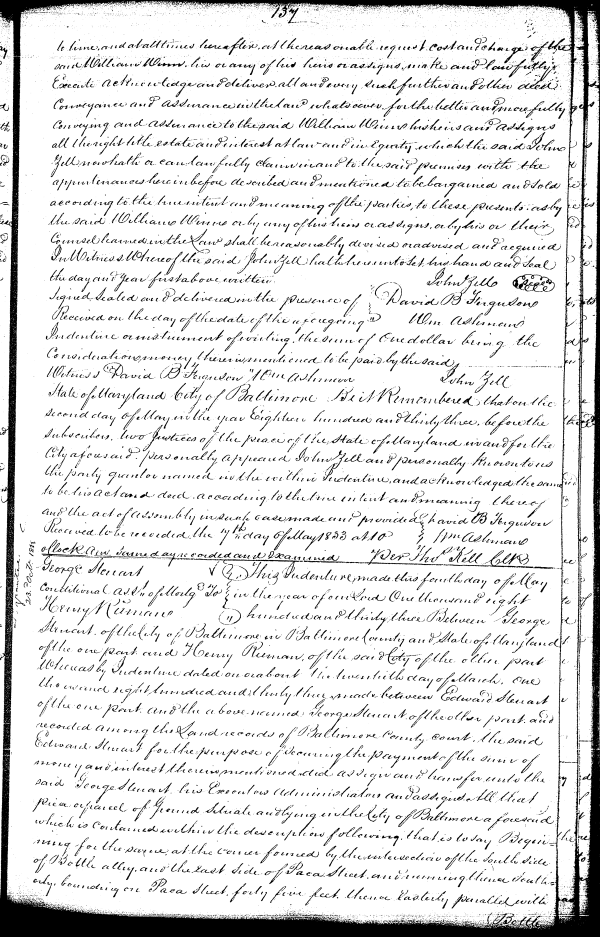 137
to time, and at all times hereafter, at the reasonable request, cost and charge of the
said William Winns, his or any of his heirs or assigns, make and lawfully
Execute acknowledge and deliver, all and every such further and other deed
Conveyance and assurance in the law whatsoever, for the better and more fully
Conveying and assurance to the said William Winns his heirs and assigns
all the right title estate and interest at law and in Equity, which the said John
Zell now hath or can lawfully claim in and to the said premises with the
appurtenances herein before described and mentioned to be bargained and sold
according to the true intent and meaning of the parties, to these presents: as by
the said William Winns or by any of his heirs or assigns, or by his or their
Counsel learned in the Law shall be reasonably devised or advised, and required
In Witness Whereof the said John Zell hath hereunto Set his hand and Seal
the day and year first above written. John Zell Seal
Signed Sealed and delivered in the presence of } David B Ferguson
Received on the day of the date of the aforegoing } Wm Ashman
Indenture or instrument of writing, the sum of One dollar being the
Consideration money therein mentioned to be paid by the said
Witness David B Ferguson Wm Ashman John Zell
State of Maryland City of Baltimore Be it Remembered that on the
second day of May in the year Eighteen hundred and thirty three, before the
subscribers, two Justices of the peace of the State of Maryland in and for the
City aforesaid, personally appeared John Zell and personally known to us
the party grantor named in the within Indenture, and acknowledged the same
to be his act and deed, according to the true intent and meaning thereof
and the act of assembly in such case made and provided. David B Ferguson
Received to be recorded the 7th day of May 1833 at 10 } Wm Ashman
oClock Am Same day recorded and Examined Per Thos Kell Clk
George Stewart } This Indenture, made this fourth day of May
Conditional assn of Mortg. To } in the year of our Lord One thousand eight
Henry Rieman } hundred and thirty three Between George
Stewart, of the City of Baltimore in Baltimore County and State of Maryland
of the one part and Henry Rieman, of the said City of the other part
Whereas by Indenture dated on or about the twentieth day of March, One
thousand eight hundred and thirty three, made between Edward Stewart
of the one part, and the above named George Stewart of the other part, and
recorded among the Land records of Baltimore County court, the said
Edward Stewart for the purpose of securing the payment of the sum of
money and interest therein mentioned did assign and transfer unto the
said George Stewart, his Executors Administrators and assigns All that
piece or parcel of Ground Situate and lying in the City of Baltimore aforesaid
which is contained within the description following, that is to say, Begin=
ning for the same, at the corner formed by the intersection of the South side
of Bottle alley, and the East side of Paca Street, and running thence South=
erly, bounding on Paca Street, forty five feet, thence Easterly parallel with
Bottle